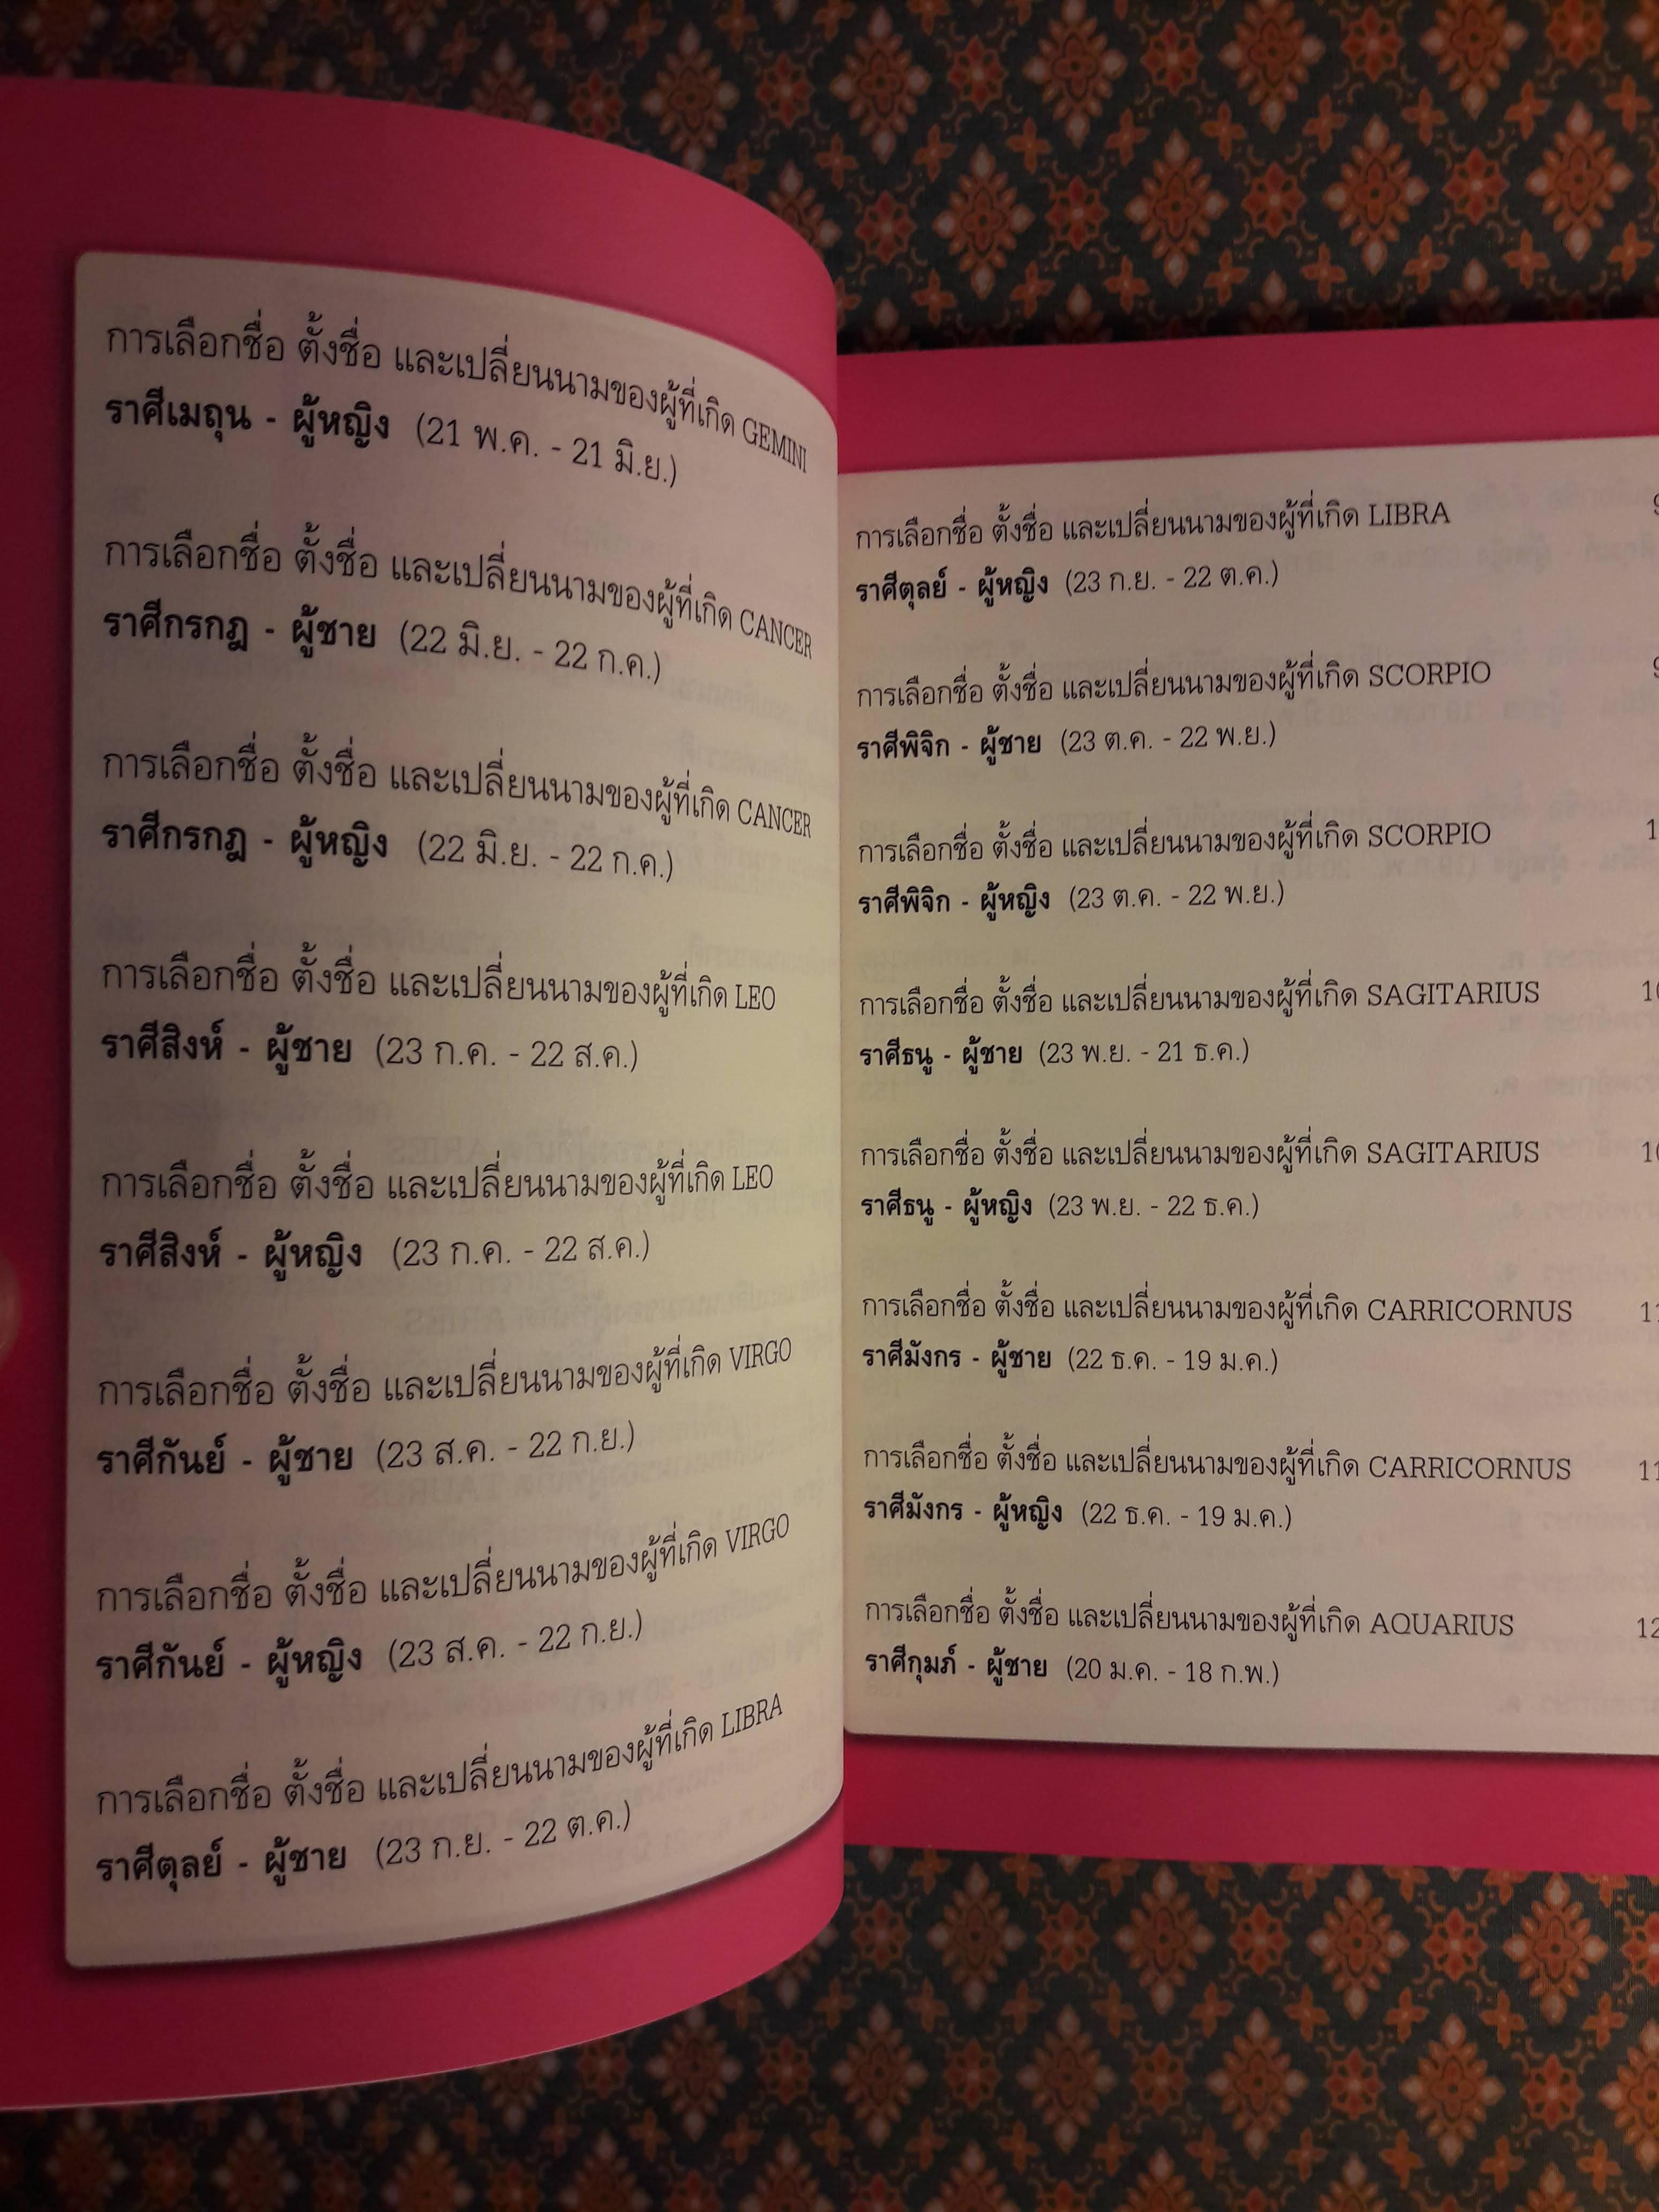 การเลือกชื่อ ตั้งชื่อ และเปลี่ยนนามของผู้ที่เกิด GEMINI
ราศีเมถุน - ผู้หญิง (21 พ.ค. - 21 มิ.ย.)
การเลือกชื่อ ตั้งชื่อ และเปลี่ยนนามของผู้ที่เกิด CANCER
ราศีกรกฎ - ผู้ชาย (22 มิ.ย. - 22 ก.ค.)
การเลือกชื่อ ตั้งชื่อ และเปลี่ยนนามของผู้ที่เกิด CANCER
ราศีกรกฎ - ผู้หญิง (22 มิ.ย. - 22 ก.ค.)
การเลือกชื่อ ตั้งชื่อ และเปลี่ยนนามของผู้ที่เกิด LEO
ราศีสิงห์ - ผู้ชาย (23 ก.ค. - 22 ส.ค.)
การเลือกชื่อ ตั้งชื่อ และเปลี่ยนนามของผู้ที่เกิด LEO
ราศีสิงห์ - ผู้หญิง (23 ก.ค. - 22 ส.ค.)
การเลือกชื่อ ตั้งชื่อ และเปลี่ยนนามของผู้ที่เกิด VIRGO
ราศีกันย์ - ผู้ชาย (23 ส.ค. - 22 ก.ย.)
การเลือกชื่อ ตั้งชื่อ และเปลี่ยนนามของผู้ที่เกิด VIRGO
ราศีกันย์ - ผู้หญิง (23 ส.ค. - 22 ก.ย.)
การเลือกชื่อ ตั้งชื่อ และเปลี่ยนนามของผู้ที่เกิด LIBRA
ราศีตุลย์ - ผู้ชาย (23 ก.ย. - 22 ต.ค.)
การเลือกชื่อ ตั้งชื่อ และเปลี่ยนนามของผู้ที่เกิด LIBRA
ราศีตุลย์ - ผู้หญิง (23 ก.ย. - 22 ต.ค.)
การเลือกชื่อ ตั้งชื่อ และเปลี่ยนนามของผู้ที่เกิด SCORPIO
ราศีพิจิก - ผู้ชาย (23 ต.ค. - 22 พ.ย.)
การเลือกชื่อ ตั้งชื่อ และเปลี่ยนนามของผู้ที่เกิด SCORPIO
ราศีพิจิก - ผู้หญิง (23 ต.ค. - 22 พ.ย.)
การเลือกชื่อ ตั้งชื่อ และเปลี่ยนนามของผู้ที่เกิด SAGITARIUS
ราศีธนู - ผู้ชาย (23 พ.ย. - 21 ธ.ค.)
การเลือกชื่อ ตั้งชื่อ และเปลี่ยนนามของผู้ที่เกิด SAGITARIUS
ราศีธนู - ผู้หญิง (23 พ.ย. - 22 ธ.ค.)
การเลือกชื่อ ตั้งชื่อ และเปลี่ยนนามของผู้ที่เกิด CARRICORNUS
ราศีมังกร - ผู้ชาย (22 ธ.ค. - 19 ม.ค.)
การเลือกชื่อ ตั้งชื่อ และเปลี่ยนนามของผู้ที่เกิด CARRICORNUS
ราศีมังกร - ผู้หญิง (22 ธ.ค. - 19 ม.ค.)
การเลือกชื่อ ตั้งชื่อ และเปลี่ยนนามของผู้ที่เกิด AQUARIUS
ราศีกุมภ์ - ผู้ชาย (20 ม.ค. - 18 ก.พ.)